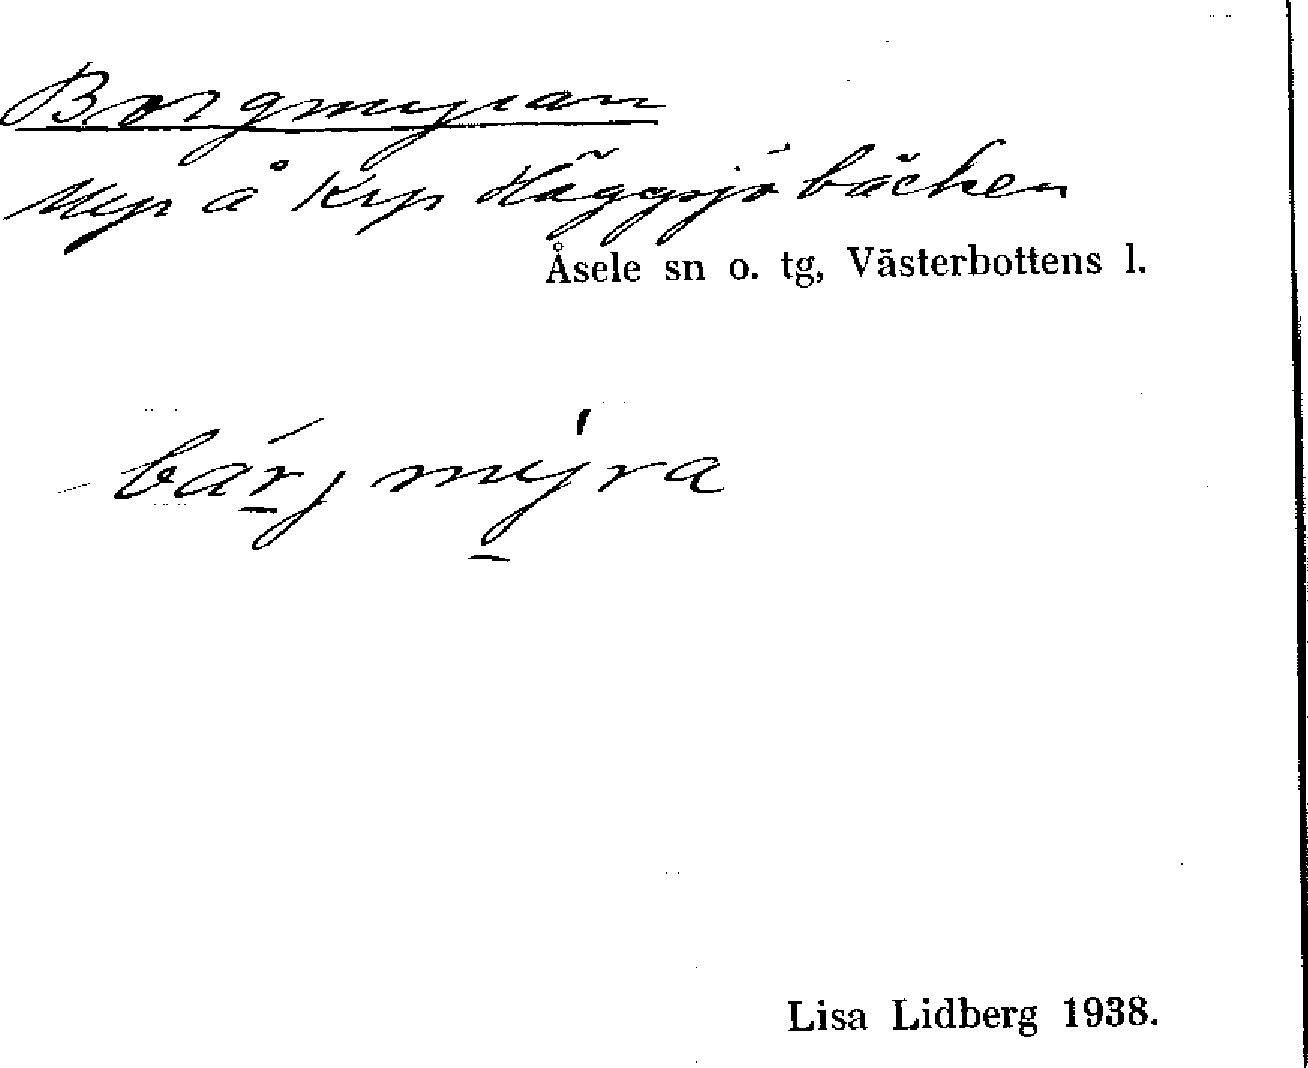 Borgmyran
Myr å krp Häggsjöbäcken
Åsele sn o. tg, Västerbottens l.
bárj mýra
Lisa Lidberg 1938.